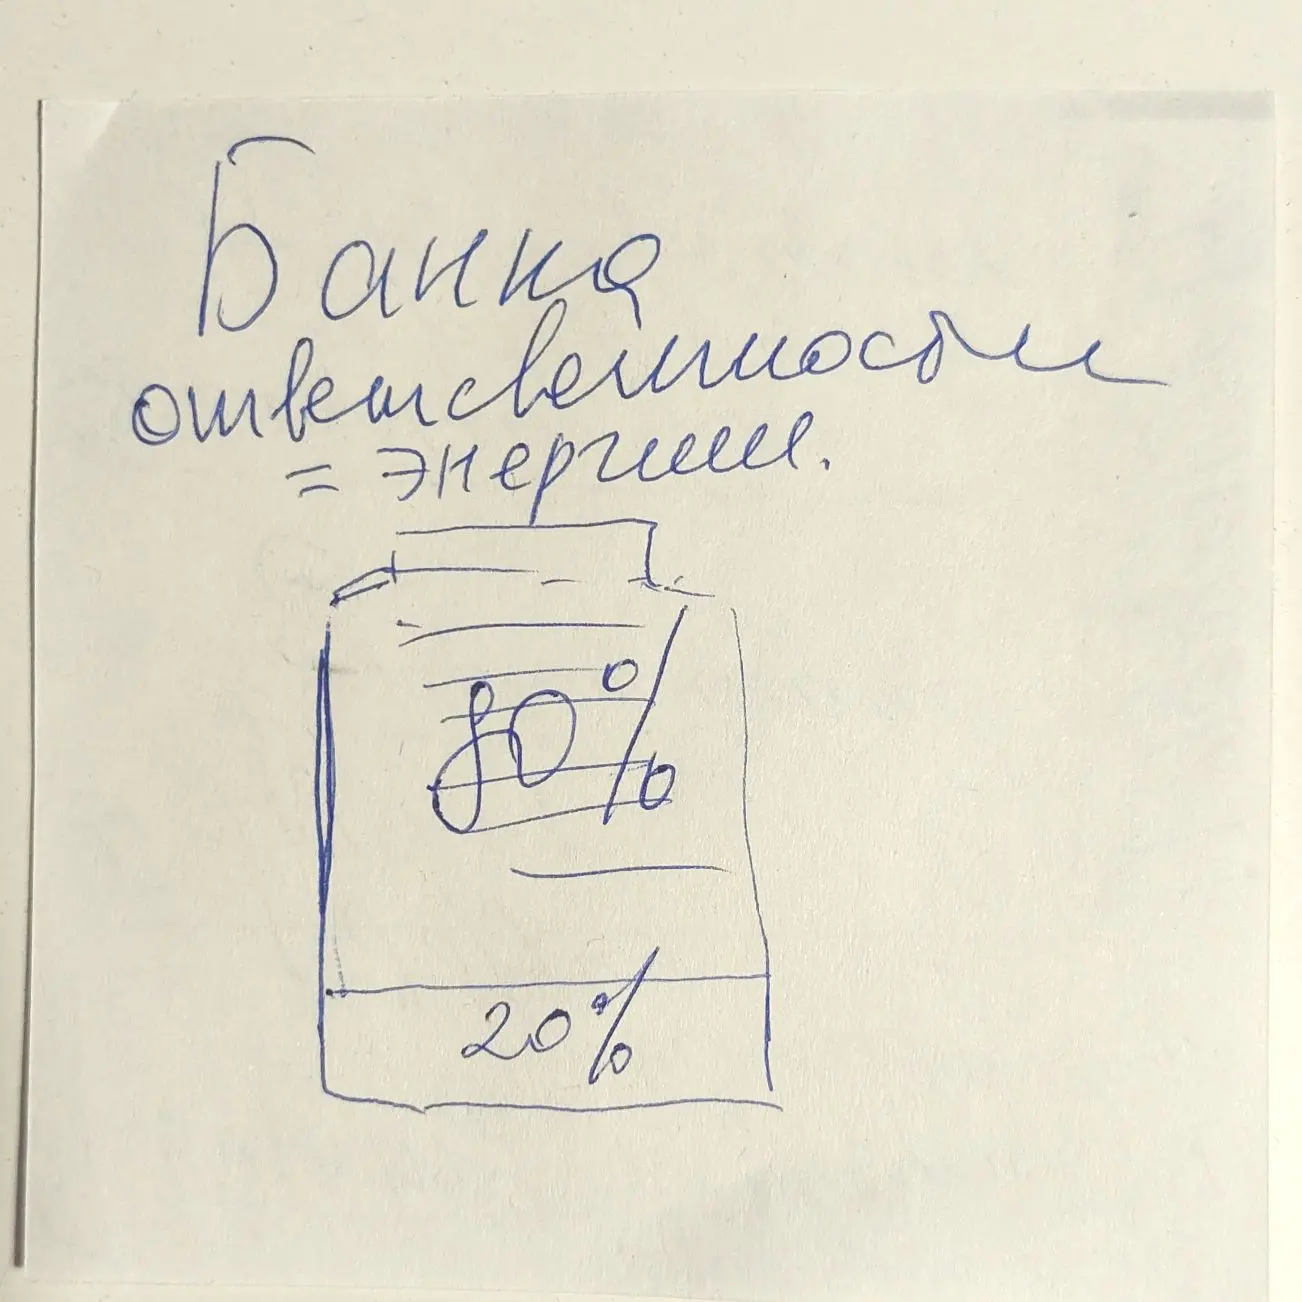 Банка
ответсвенности
= энергии.
80%
20%